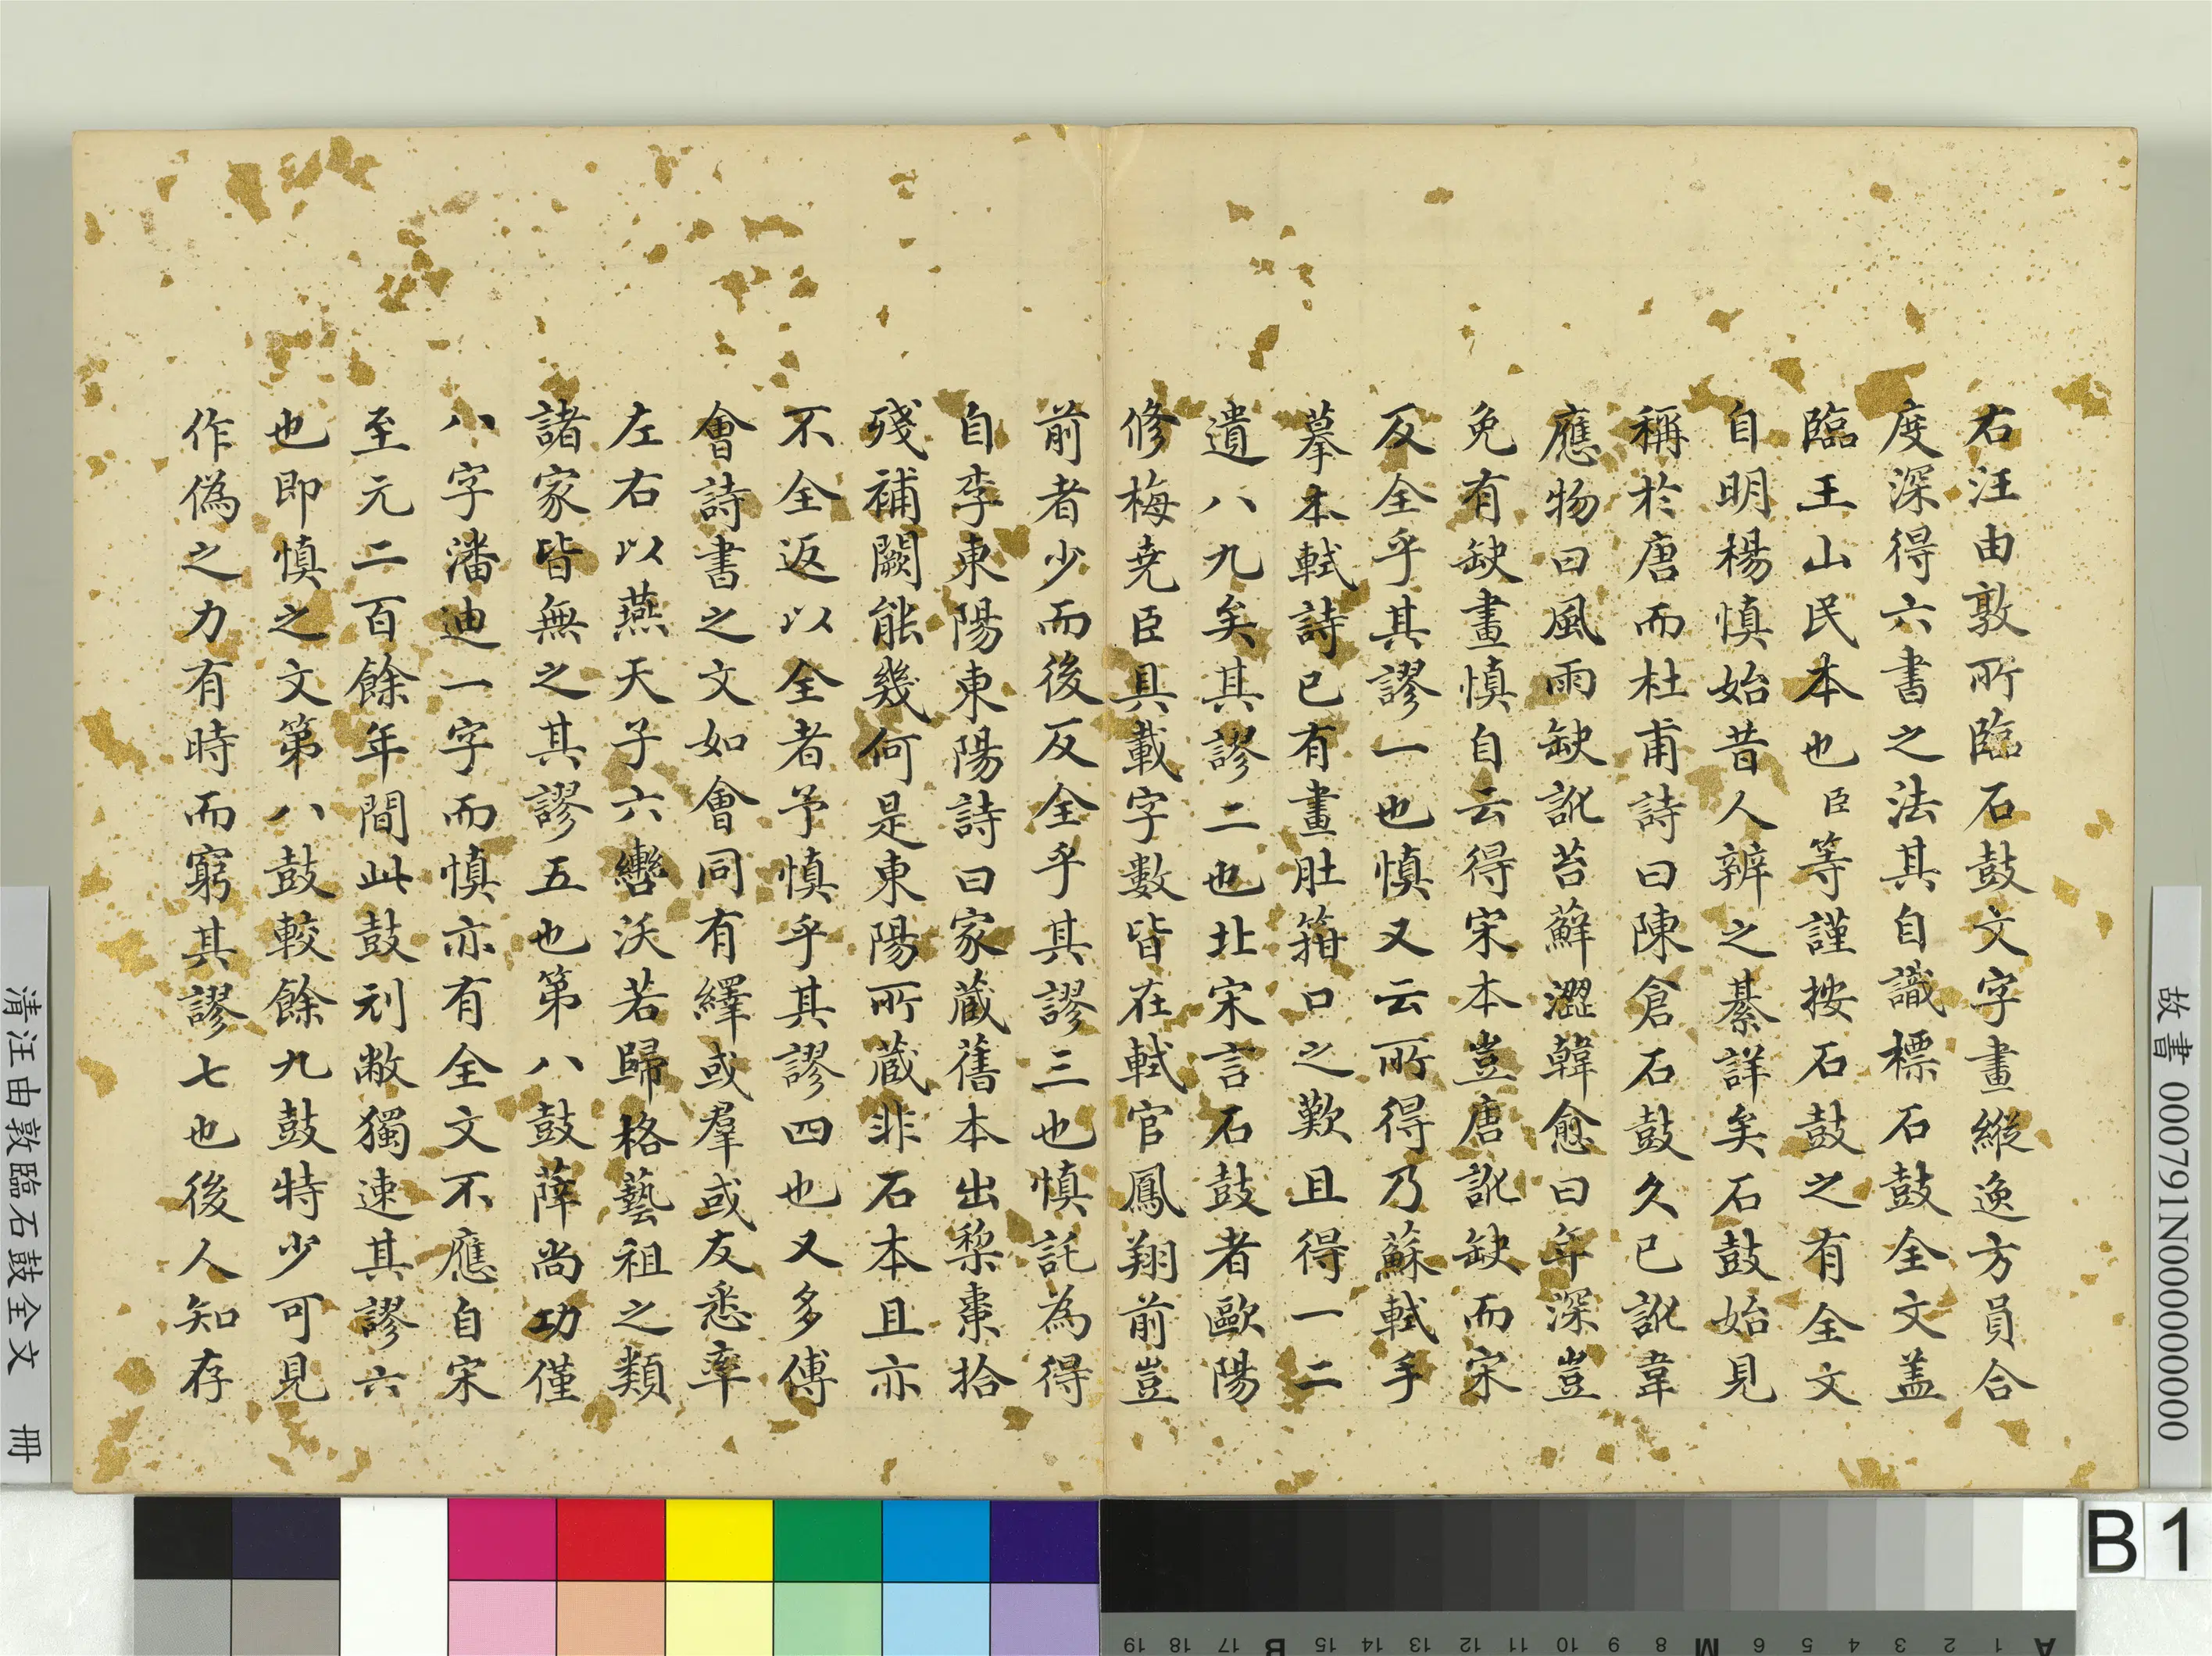 右汪由敦所臨石鼓文字畫縱逸方員合
度深得六書之法其自識標石鼓全文盖
臨王山民本也臣等謹按石鼓之有全文
自明楊慎始昔人辨之綦詳矣石鼓始見
稱於唐而杜甫詩曰陳倉石鼓久已訛韋
應物曰風雨缺訛苔蘚澀韓愈曰年深豈
免有缺畫慎自云得宋本豈唐訛缺而宋
反全乎其謬一也慎又云所得乃蘇軾手
摹本軾詩已有畫肚箝口之歎且得一二
遺八九矣其謬二也北宋言石鼓者歐陽
修梅堯臣具載字數皆在軾官鳳翔前豈
前者少而後反全乎其謬三也慎託為得
自李東陽東陽詩曰家蔵舊本出梨棗拾
殘補闕能幾何是東陽所蔵非石本且亦
不全返以全者予慎乎其謬四也又多傅
會詩書之文如會同有繹或羣或友悉率
左右以燕天子六轡沃若歸格藝祖之類
諸家皆無之其謬五也第八鼓薛尚功僅
八字潘迪一字而慎亦有全文不應自宋
至元二百餘年間此鼓刓敝獨速其謬六
也即慎之文第八鼓較餘九鼓特少可見
作偽之力有時而窮其謬七也後人知存
故書 000791N000000000
清汪由敦臨石鼓全文 冊
B 1
A 1 2 3 4 5 6 M 8 9 10 11 12 13 14 15 B 17 18 19